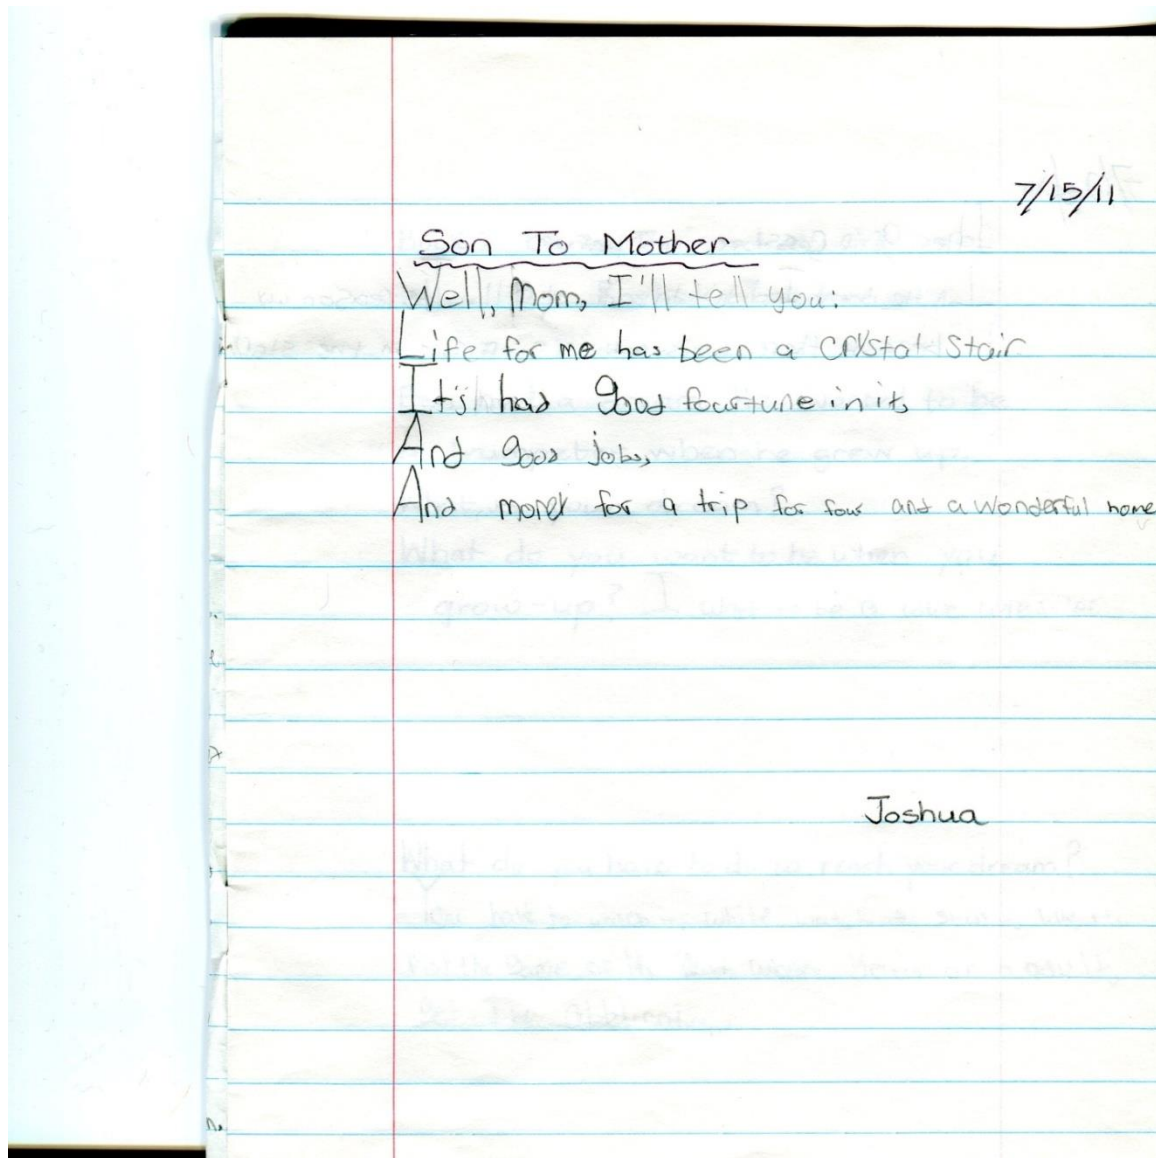 7/15/11
Son To Mother
Well, Mom, I'll tell you:
Life for me has been a crystal stair
It's had good fourtune in it,
And good jobs,
And money for a trip for four and a wonderful home
Joshua